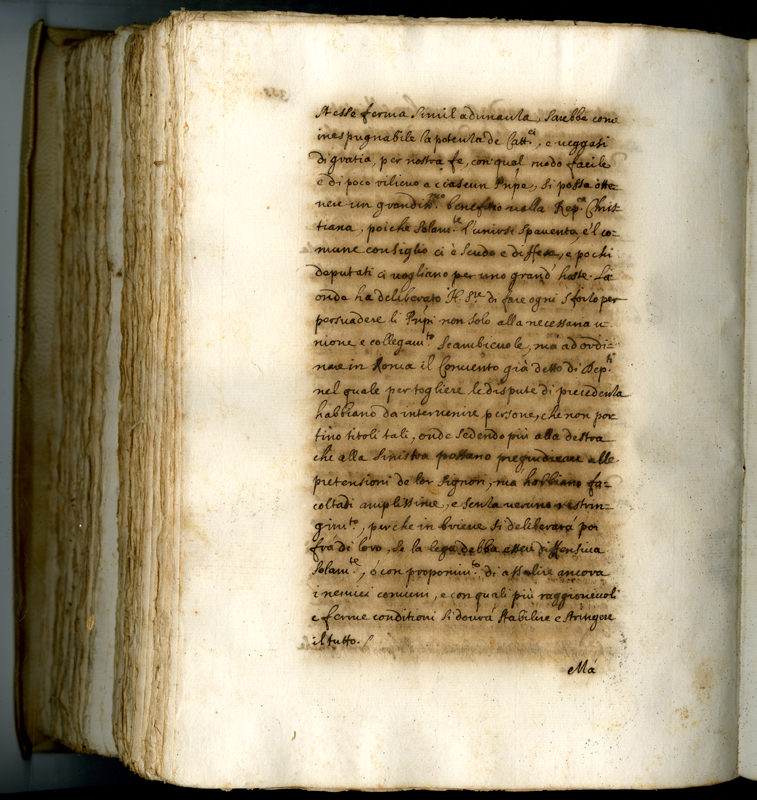 stesse ferma simil adunanza, sarebbe come
inespugnabile la potenza de Catt.ci, e veggasi
di gratia, per nostra fe, con qual modo facile
e di poco rilievo a ciascun Pnpe, si possa otte=
nere un grandiss.mo benefitio nella Rep.ca Chris=
tiana, poiche solam.te l'unirsi spaventa, e'l co=
mune consiglio ci è scudo e diffesa, e pochi
deputati ci vogliano per uno grand' haste. La
onde ha deliberato N. S.re di fare ogni sforzo per
persuadere li Pnpi non solo alla necessaria u=
nione e collegam.to scambievole, mà ad ordi=
nare in Roma il Convento già detto di Dep.ti
nel quale per togliere le dispute di precedenza
habbiano da intervenire persone, che non por
tino titoli tali, onde sedendo più alla destra
che alla sinistra possano pregiudicare alle
pretensioni de lor signori, ma habbiano fa=
coltadi amplissime, e senza veruno restrin=
gim.to, perche in brieve si deliberarà poi
frà di loro, se la lega debba esser diffensiva
solam.te, ò con proponim.to di assalire ancora
i nemici comuni, e con quali più raggionevoli
e ferme conditioni si dovrà stabilire e stringere
il tutto.
Mà